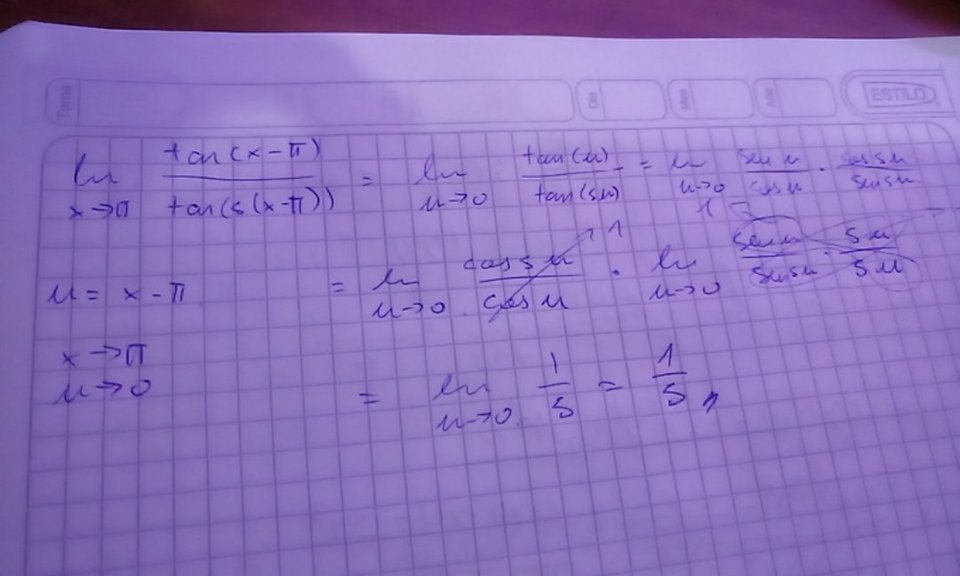 Tema Día Mes Año ESTILO
lim x→π tan(x-π) / tan(5(x-π)) = lim u→0 tan(u) / tan(5u) = lim u→0 sen u / cos u · cos 5u / sen 5u
u = x-π = lim u→0 cos 5u / cos u → 1 · lim u→0 sen u / sen 5u · 5u / 5u → 1
x→π
u→0 = lim u→0 1/5 = 1/5 //